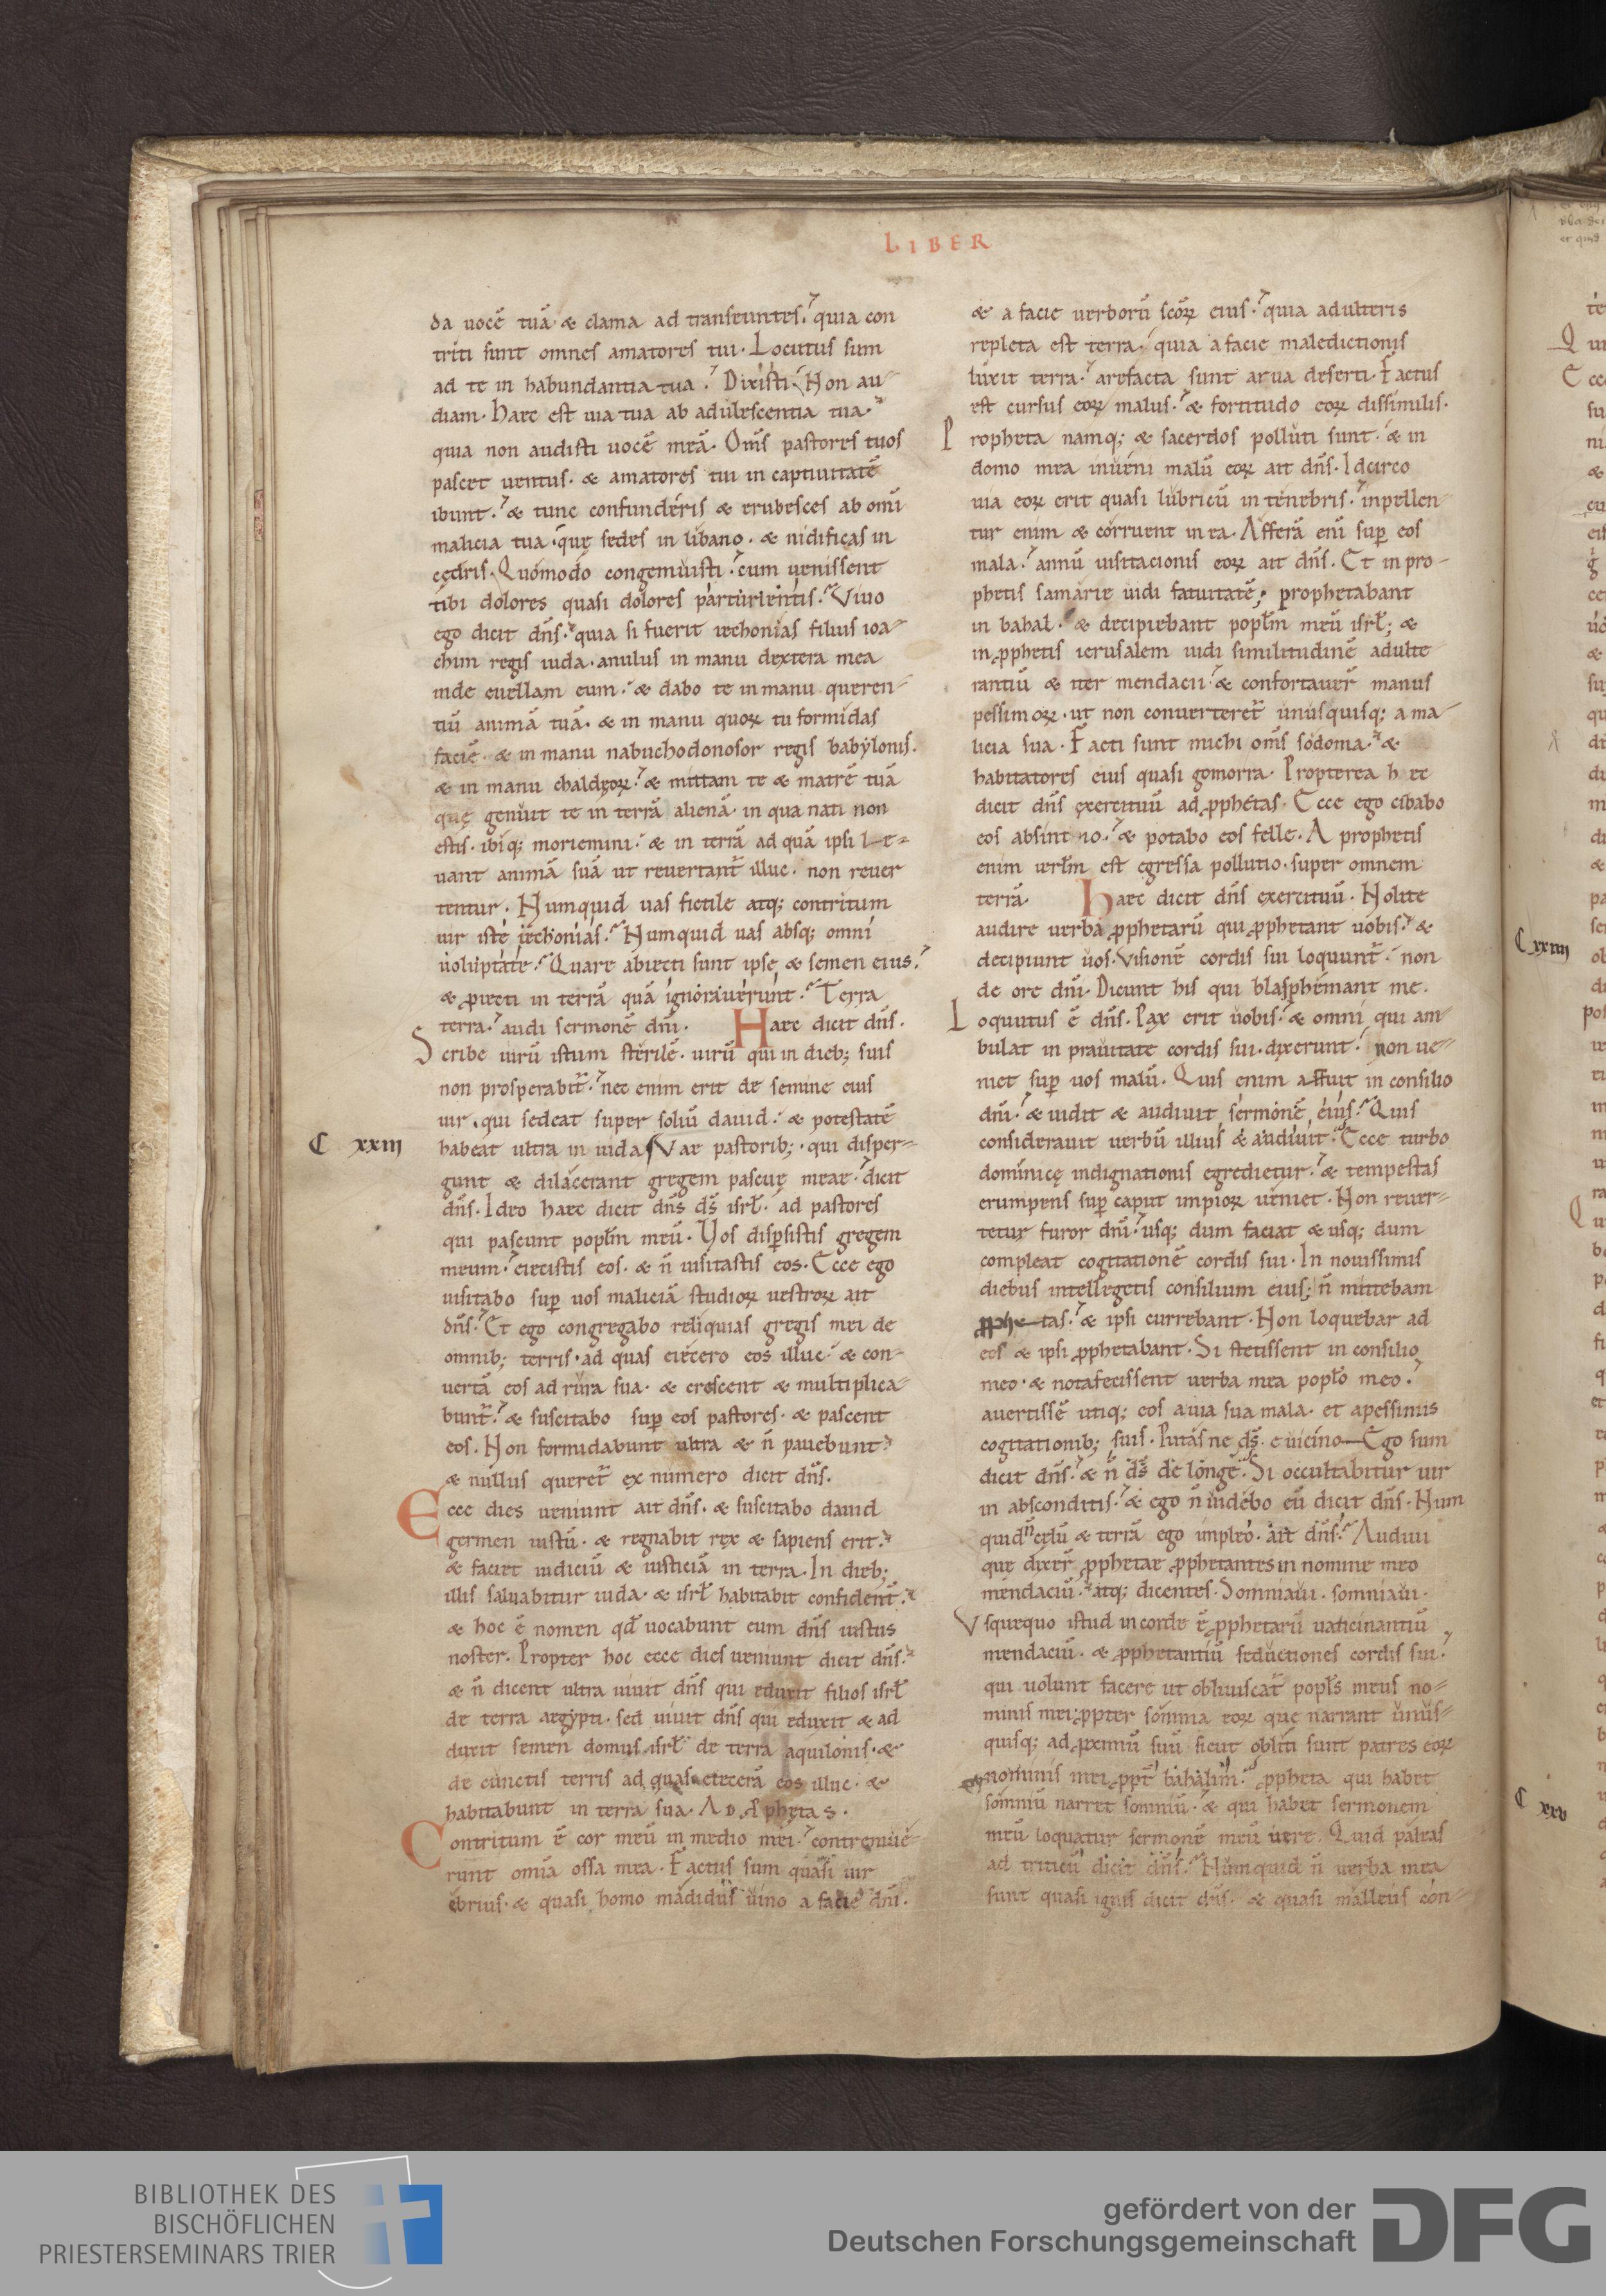 LIBER
da uocē tuā & clama ad transeuntes. quia con
triti sunt omnes amatores tui. Locutus sum
ad te in habundantia tua. Dixisti. Non au
diam. Haec est uia tua ab adulescentia tua.
quia non audisti uocē meā. Om̄s pastores tuos
pascet uentus. & amatores tui in captiuitatē
ibunt. & tunc confunderis & erubesces ab omī
malicia tua. quę sedes in libano. & nidificas in
cędris. Quomodo congemuisti. cum uenissent
tibi dolores quasi dolores parturientis. Viuo
ego dicit dn̄s. quia si fuerit iechonias filius ioa-
chim regis iuda. anulus in manu dextera mea
inde euellam eum. & dabo te in manu queren-
tiū animā tuā. & in manu quoꝝ tu formidas
faciē. & in manu nabuchodonosor regis babylonis.
& in manu chaldęoꝝ. & mittam te & matrē tuā
quę genuit te in terrā alienā. in qua nati non
estis. ibiq; moriemini. & in terrā ad quā ipsi le-
uant animā suā ut reuertant̄ illuc. non reuer
tentur. Numquid uas fictile atq; contritum
uir iste iechonias. Numquid uas absq; omni
uoluptate. Quare abiecti sunt ipse & semen eius.
& ꝓiecti in terrā quā ignorauerunt. Terra
terra. audi sermonē dn̄i. Haec dicit dn̄s.
Scribe uirū istum sterilē. uirū qui in dieb; suis
non prosperabit̄. nec enim erit de semine eius
uir. qui sedeat super soliū dauid. & potestatē
C xxiii
habeat ultra in iuda Vae pastorib;. qui disper-
gunt & dilacerant gregem pascuę meae. dicit
dn̄s. Ideo haec dicit dn̄s ds̄ isrł. ad pastores
qui pascunt popłm meū. Vos disꝑsistis gregem
meum. eiecistis eos. & n̄ uisitastis eos. Ecce ego
uisitabo suꝑ uos maliciā studioꝝ uestroꝝ ait
dn̄s. Et ego congregabo reliquias gregis mei de
omnib; terris. ad quas eiecero eos illuc. & con-
uertā eos ad rura sua. & crescent & multiplica-
bunt̄. & suscitabo suꝑ eos pastores. & pascent
eos. Non formidabunt ultra & n̄ pauebunt.
& nullus queret̄ ex numero dicit dn̄s.
Ecce dies ueniunt ait dn̄s. & suscitabo dauid
germen iustū. & regnabit rex & sapiens erit.
& faciet iudiciū & iusticiā in terra. In dieb;
illis saluabitur iuda. & isrł habitabit confident̄.
& hoc ē nomen qđ uocabunt eum dn̄s iustus
noster. Propter hoc ecce dies ueniunt dicit dn̄s.
& n̄ dicent ultra uiuit dn̄s qui eduxit filios isrł
de terra aegypti. sed uiuit dn̄s qui eduxit & ad
duxit semen domus isrł de terra aquilonis. &
de cunctis terris ad quas eieceram eos illuc. &
habitabunt in terra sua. AD PPhetas.
Contritum ē cor meū in medio mei. contremue-
runt omīa ossa mea. Factus sum quasi uir
ebrius. & quasi homo madidus uino a facie dn̄i.
& a facie uerborū scōꝝ eius. quia adulteris
repleta est terra. quia a facie maledictionis
luxit terra. arefacta sunt arua deserti. Factus
est cursus eoꝝ malus. & fortitudo eoꝝ dissimilis.
Propheta namq; & sacerdos polluti sunt. & in
domo mea inueni malū eoꝝ ait dn̄s. Idcirco
uia eoꝝ erit quasi lubricū in tenebris. inpellen-
tur enim & corruent in ea. Afferā eni suꝑ eos
mala. annū uisitacionis eoꝝ ait dn̄s. Et in pro-
phetis samarie uidi fatuitatē; prophetabant
in bahal. & decipiebant popłm meū isrł; &
in ꝓphetis ierusalem uidi similitudinē adulte-
rantiū & iter mendacii. & confortauer̄ manus
pessimoꝝ. ut non conuerteret̄ unusquisq; a ma-
licia sua. Facti sunt michi om̄s sodoma. &
habitatores eius quasi gomorra. Propterea hec
dicit dn̄s exercituū ad ꝓphetas. Ecce ego cibabo
eos absintio. & potabo eos felle. A prophetis
enim ierłm est egressa pollutio. super omnem
terrā. Haec dicit dn̄s exercituū. Nolite
audire uerba ꝓphetarū qui ꝓphetant uobis. &
C xxiiii
decipiunt uos. Visionē cordis sui loquunt̄. non
de ore dn̄i. Dicunt his qui blasphemant me.
Loquutus ē dn̄s. Pax erit uobis. & omni qui am-
bulat in prauitate cordis sui. dixerunt. non ue-
niet suꝑ uos malū. Quis enim affuit in consilio
dn̄i. & uidit & audiuit sermonē eius. Quis
considerauit uerbū illius & audiuit. Ecce turbo
dominicę indignationis egredietur. & tempestas
erumpens suꝑ caput impioꝝ ueniet. Non reuer-
tetur furor dn̄i. usq; dum faciat & usq; dum
compleat cogitationē cordis sui. In nouissimis
diebus intellegetis consilium eius; n̄ mittebam
ꝓphetas. & ipsi currebant. Non loquebar ad
eos & ipsi ꝓphetabant. Si stetissent in consilio
meo. & nota fecissent uerba mea popło meo.
auertissē utiq; eos a uia sua mala. et a pessimis
cogitationib; suis. Putas ne ds̄ e uicino Ego sum
dicit dn̄s. & n̄ ds̄ de longe. Si occultabitur uir
in absconditis. & ego n̄ uidebo eū dicit dn̄s. Num
quid n̄ celū & terrā ego impleo. ait dn̄s. Audiui
que dixer̄ ꝓphetae ꝓphetantes in nomine meo
mendaciū. atq; dicentes. Somniaui. somniaui.
Vsquequo istud in corde ē ꝓphetarū uaticinantiū
mendaciū. & ꝓphetantiū seductiones cordis sui.
qui uolunt facere ut obliuiscat̄ popłs meus no-
minis mei. ꝓpter somnia eoꝝ que narrant unus-
quisq; ad ꝓximū suū sicut obliti sunt patres eoꝝ
nominis mei ꝓpt̄ bahalim. ꝓpheta qui habet
somniū narret somniū. & qui habet sermonem
C xxv
meū loquatur sermonē meū uere. Quid paleas
ad triticū dicit dn̄s. Numquid n̄ uerba mea
sunt quasi ignis dicit dn̄s. & quasi malleus con-
BIBLIOTHEK DES
BISCHÖFLICHEN
PRIESTERSEMINARS TRIER
gefördert von der
Deutschen Forschungsgemeinschaft
DFG